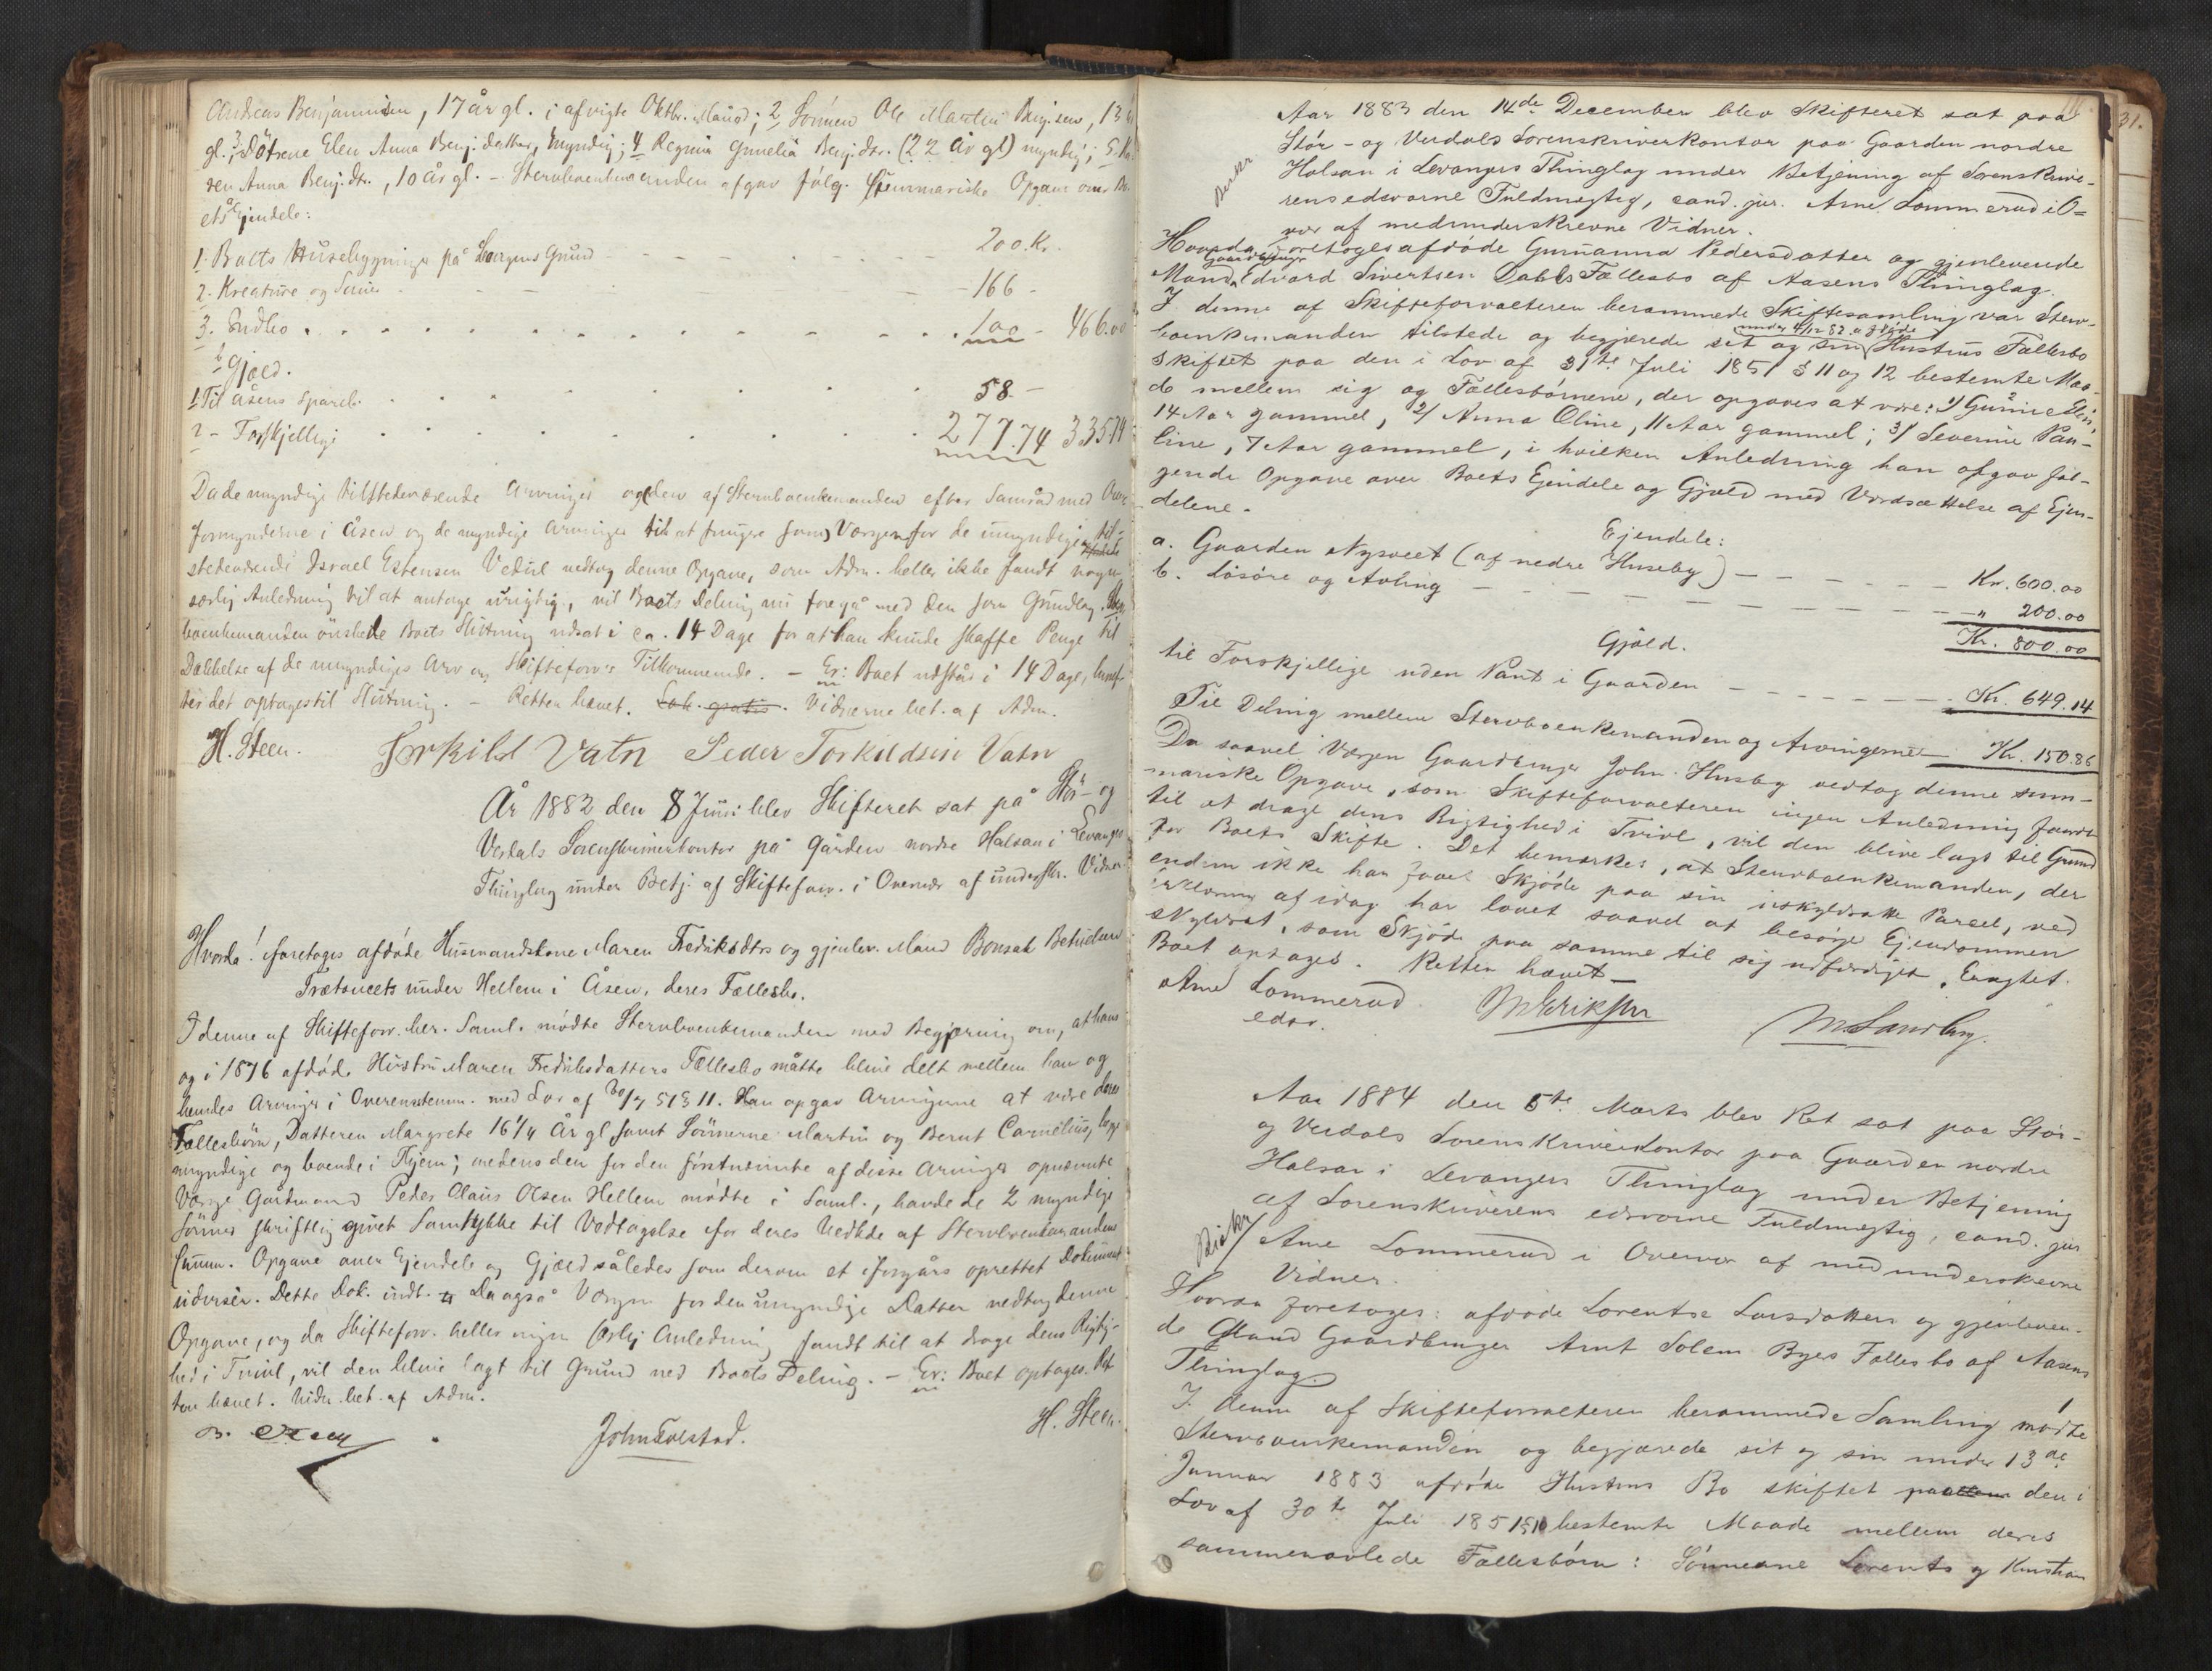 Andreas Benjaminsen, 17 år gl. i afvigte Oktbr. Maaned; 2 Sönnen Ole Martin Benj.sen, 13 år
gl.; 3 Døtrene Elen Anna Benj.datter, myndig; 4 Regina Gunelia Benj.dtr. (22 år gl) myndig; 5 Ka-
ren Anna Benj.dtr., 10 år gl. – Stervboenkemanden afgav følg. summariske Opgave over Bo-
ets Ejendele:
1. Boets Husebygninger på Grund 200. Kr.
2. Kreature og 166 –
3. Indbo 100 – 466.00
b Gjæld.
1. Til Åsens Spareb. 58 –
2 – Forskjellige 277.74 335.74
Da de myndige tilstedeværende Arvinger og den af Stervboenkemanden efter Samråd med Over-
formynderne i Åsen og de myndige Arvinger til at fungere som Værge for de umyndige til-
stedeværende Israel Estensen Vedul vedtog denne Opgave, som Adm. heller ikke fandt nogen
særlig Anledning til at antage urigtig, vil Boets Deling nu foregå med den som Grundlag.
boenkemanden ønskede Boets Slutning udsat i ca. 14 Dage for at han kunde skaffe Penge til
Dækkelse af de umyndiges Arv og Skifteforv's Tilkommende. – Er: Boet udstår i 14 Dage, hvoref-
ter det optages til Slutning. – Retten hævet. Vidnerne bet. af Adm.
H. Steen. Torkild Vatn Peder Torkildsen Vatn
År 1882 den 8 Juni blev Skifteret sat på Stör- og
Verdals Sorenskriverkontor på Gården nordre Halsan i Levanger
Thinglag under Betj. af Skifteforv. i Overvær af underskr. Vidner
Hvorda! foretages afdöde Husmandskone Maren Fredriksdtrs og gjenlev. Mand Bonsak
Trætsveets under Hellem i Åsen, deres Fællesbo.
I denne af Skifteforv. ber. Saml. mødte Stervboenkemanden med Begjæring om, at hans
og i 1876 afdöde Hustru Maren Fredriksdatters Fællesbo måtte blive delt mellem han og
hendes Arvinger i Overensstemm. med Lov af 30/7 51 § 11. Han opgav Arvingerne at være deres
Fællesbörn, Datteren Margrete 16 1/4 År gl samt Sönnerne Martin og Bernt Cornelius, begge
myndige og boende i Hjem; medens den for den förstnævnte af disse Arvinger opnævnte
Værge Gårdmand Peder Claus Olsen Hellem mødte i Saml., havde de 2 myndige
Sönner skriftlig givet Samtykke til Vedtagelse for deres Vedkde af Stervboenkemandens
summ. Opgave over Ejendele og Gjæld således som derom et iforgårs oprettet Dokument
udviser. Dette Dok. indt. Da også Værgen for den umyndige Datter vedtog denne
Opgave, og da Skifteforv. heller ingen særlig Anledning fandt til at drage dens Rigtig-
hed i Tvivl, vil den blive lagt til Grund ved Boets Deling. – Er: Boet optages. Ret-
ten hævet. Vidn. bet. af Adm.
H. Steen.
John Tolstad.
31.
Aar 1883 den 14de December blev Skifteret sat paa
Stör- og Verdals Sorenskriverkontor paa Gaarden nordre
Halsan i Levangers Thinglag under Betjening af Sorenskrive-
rens edsvorne Fuldmegtig, cand. jur. Arne Lommerud i O-
vervær af medunderskrevne Vidner.
Hvorda foretoges afdöde Gurianna Pedersdatter og gjenlevende
Mand Gaardbruger Edvard Sivertsen Dahls Fællesbo af Aasens Thinglag.
I denne af Skifteforvalteren berammede Skiftesamling var Sterv-
boenkemanden tilstede og begjærede sit og sin under 4/12 82 afdöde Hustrus Fællesbo
skiftet paa den i Lov af 31te Juli 1851 § 11 og 12 bestemte Maa-
de mellem sig og Fællesbörnene, der opgaves at være: 1/ Gunine Elin,
14 Aar gammel, 2/ Anna Oline, 11 Aar gammel; 3/ Severine Pau-
line, 7 Aar gammel, i hvilken Anledning han afgav føl-
gende Opgave over Boets Ejendele og Gjæld med Værdsættelse af Ejen-
delene.
Ejendele:
a. Gaarden Nysveet (af nedre Huseby) – Kr. 600.00
b. Løsöre og Avling – „ 200.00
Kr. 800.00
Gjæld.
til Forskjellige uden Pant i Gaarden – Kr. 649.14
Til Deling mellem Stervboenkemanden og Arvingerne – Kr. 150.86
Da saavel Værgen Gaardbruger John Husby vedtog denne sum-
mariske Opgave, som Skifteforvalteren ingen Anledning fandt
til at drage dens Rigtighed i Tvivl, vil den blive lagt til Grund
for Boets Skifte. Det bemærkes, at Stervboenkemanden, der
endnu ikke har faaet Skjöde paa sin uskyldsatte Parcel, ved
Erklæring af idag har lovet saavel at besörge Ejendommen
skyldsat, som Skjöde paa samme til sig udfærdiget. Eragtet.
Boet optages. Retten hævet –
Arne Lommerud
edsv.
M Eriksen
M. Sandberg.
Aar 1884 den 5te Marts blev Ret sat paa Stör-
og Verdals Sorenskriverkontor paa Gaarden nordre
Halsan i Levangers Thinglag under Betjening
af Sorenskriverens edsvorne Fuldmegtig, cand. jur
Arne Lommerud i Overvær af medunderskrevne
Vidner.
Hvorda foretoges: afdöde Lorentse Larsdatters og gjenleven-
de Mand Gaardbruger Arnt Solem Byes Fællesbo af Aasens
Thinglag
I denne af Skifteforvalteren berammede Samling mødte
Stervboenkemanden og begjærede sit og sin under 13de
Januar 1883 afdöde Hustrus Bo skiftet paa den i
Lov af 30te Juli 1851 bestemte Maade mellem deres
sammenavlede Fællesbörn: Sönnerne Lorents og Kristian